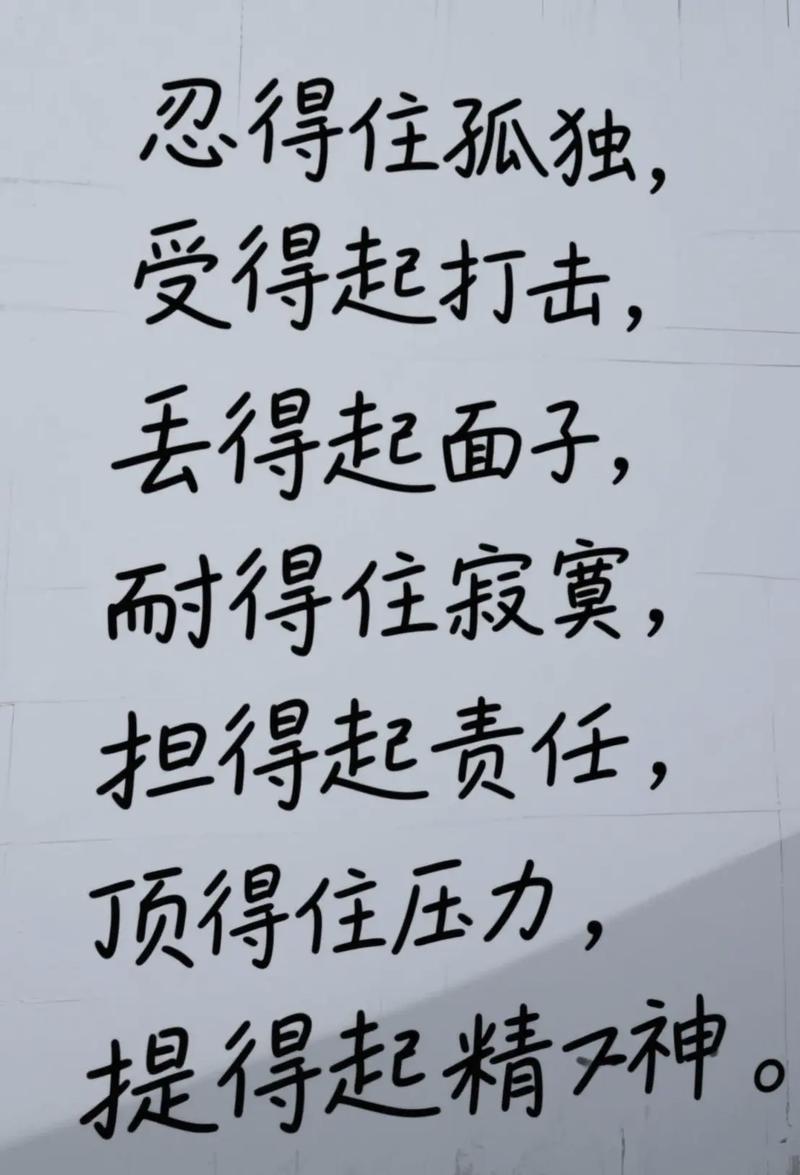 忍得住孤独,
受得起打击,
丢得起面子,
耐得住寂寞,
担得起责任,
顶得住压力,
提得起精神。